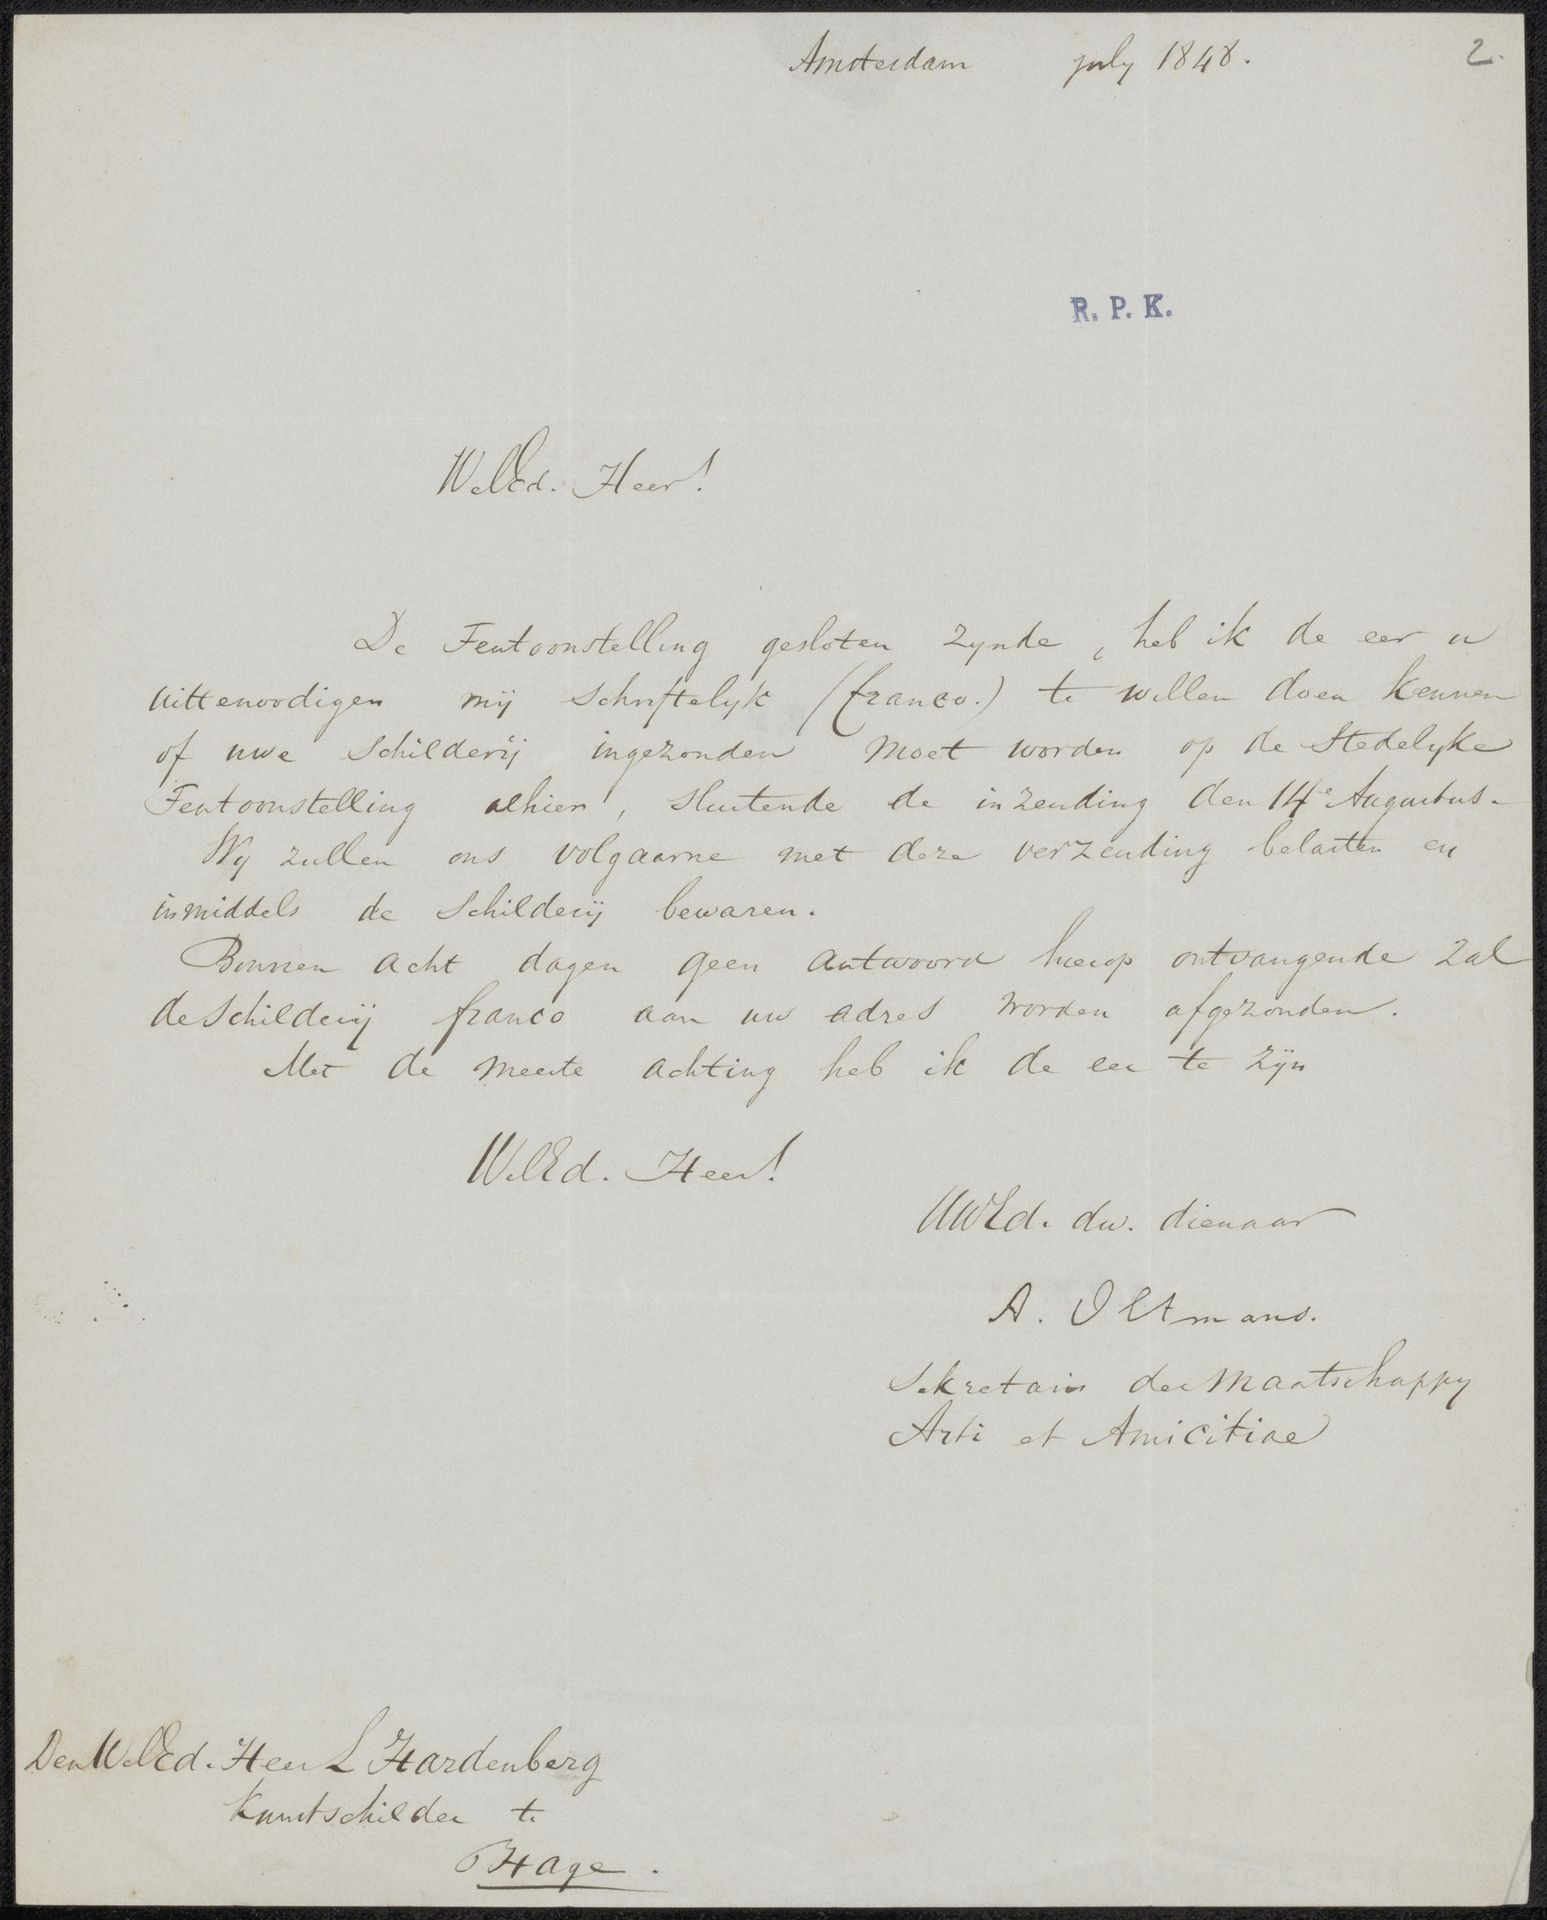 Amsterdam july 1848.
2.
R. P. K.
WelEd. Heer!
De Tentoonstelling gesloten zynde, heb ik de eer u
uittenoodigen mij schriftelyk (franco.) te willen doen kennen
of uwe schilderij ingezonden moet worden op de Stedelyke
Tentoonstelling alhier, sluitende de inzending den 14e Augustus.
Wy zullen ons volgaarne met deze verzending belasten en
inmiddels de schilderij bewaren.
Binnen acht dagen geen antwoord hierop ontvangende zal
de schilderij franco aan uw adres worden afgezonden.
Met de meeste achting heb ik de eer te zijn
WelEd. Heer!
UWEd. dw. dienaar
A. Oltmans.
Sekretaris der Maatschappy
Arti et Amicitiae
Den WelEd. Heer L Hardenberg
Kunstschilder te
'sHage.